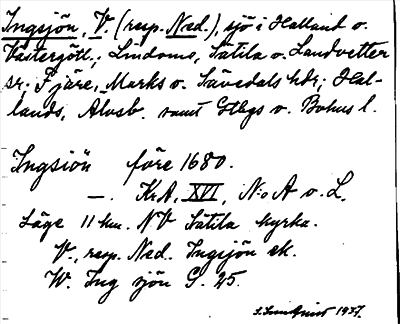 Ingsjön, V. (resp. Ned.), sjö i Halland o.
Västergötl.; Lindome, Sätila o. Landvetter
sr; Fjäre, Marks o. Sävedals hdr; Hal-
lands, Älvsb. samt Gtbgs o. Bohus l.
Ingsiön före 1680.
—. KrA, XVI, N:o A o. L.
Läge 11 km. NV Sätila kyrka.
V., resp. Ned. Ingsjön ek.
W. Ing sjön G. 25.
1937.